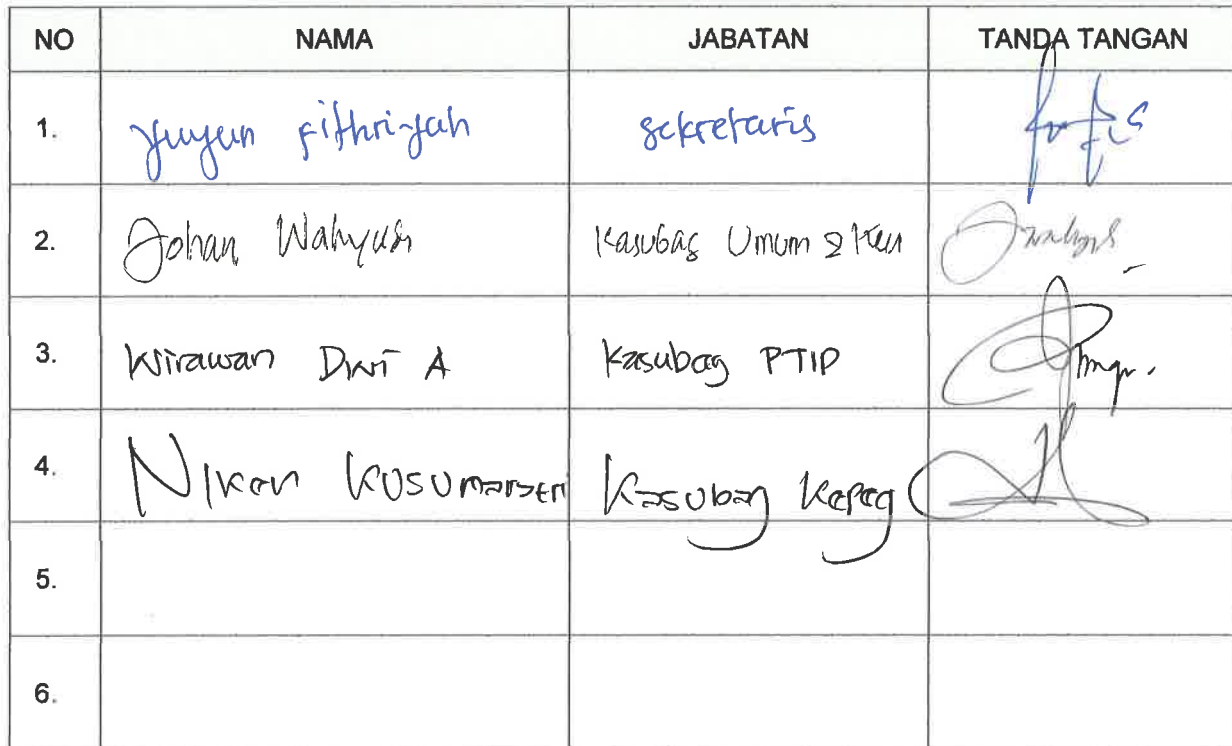 NO NAMA JABATAN TANDA TANGAN
1. Yuyun Fithriyah Sekretaris
2. Johan Wahyudi Kasubag Umum & Keu
3. Wirawan Dwi A Kasubag PTIP
4. Niken Kusumarsari Kasubag Kepeg
5.
6.